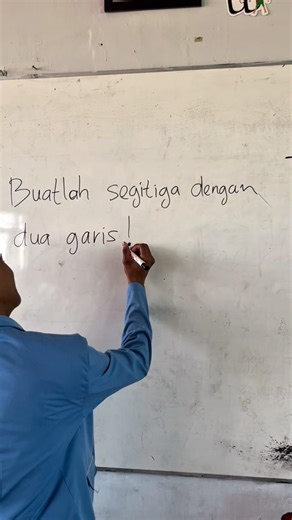 Buatlah segitiga dengan
dua garis!